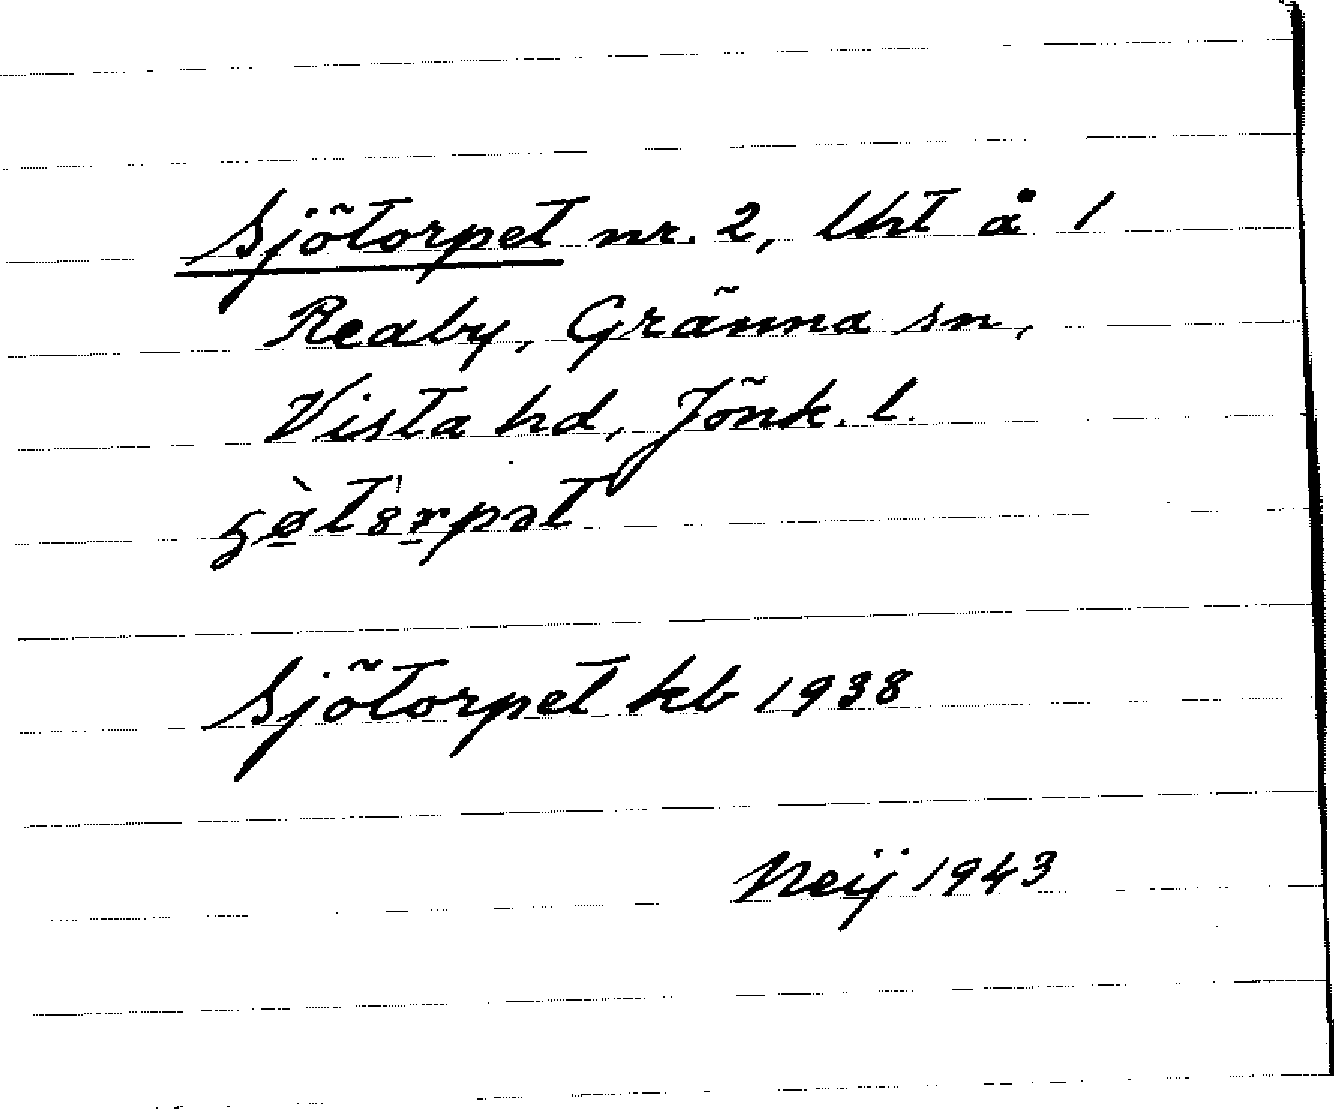 Sjötorpet nr. 2, lht å 1
Reaby, Gränna sn,
Vista hd, Jönk. l.
Sjötorpet kb 1938
Neij 1943